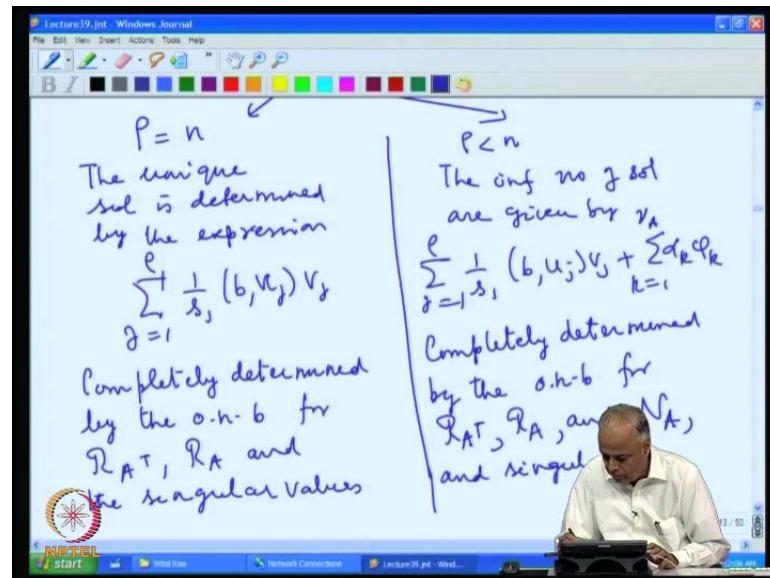 Lecture39.jnt - Windows Journal
File Edit View Insert Actions Tools Help
B I
ρ = n
The unique
sol is determined
by the expression
∑_{j=1}^{ρ} 1/s_j (b, u_j) v_j
Completely determined
by the o.n.b for
R_{A^T}, R_A and
the singular values
ρ < n
The inf no of sol
are given by
∑_{j=1}^{ρ} 1/s_j (b, u_j) v_j + ∑_{k=1}^{ν_A} α_k φ_k
Completely determined
by the o.n.b for
R_{A^T}, R_A, N_A,
and
13 / 50
NPTEL
start
Vittal Rao
Network Connections
Lecture39.jnt - Wind...
12:06 AM